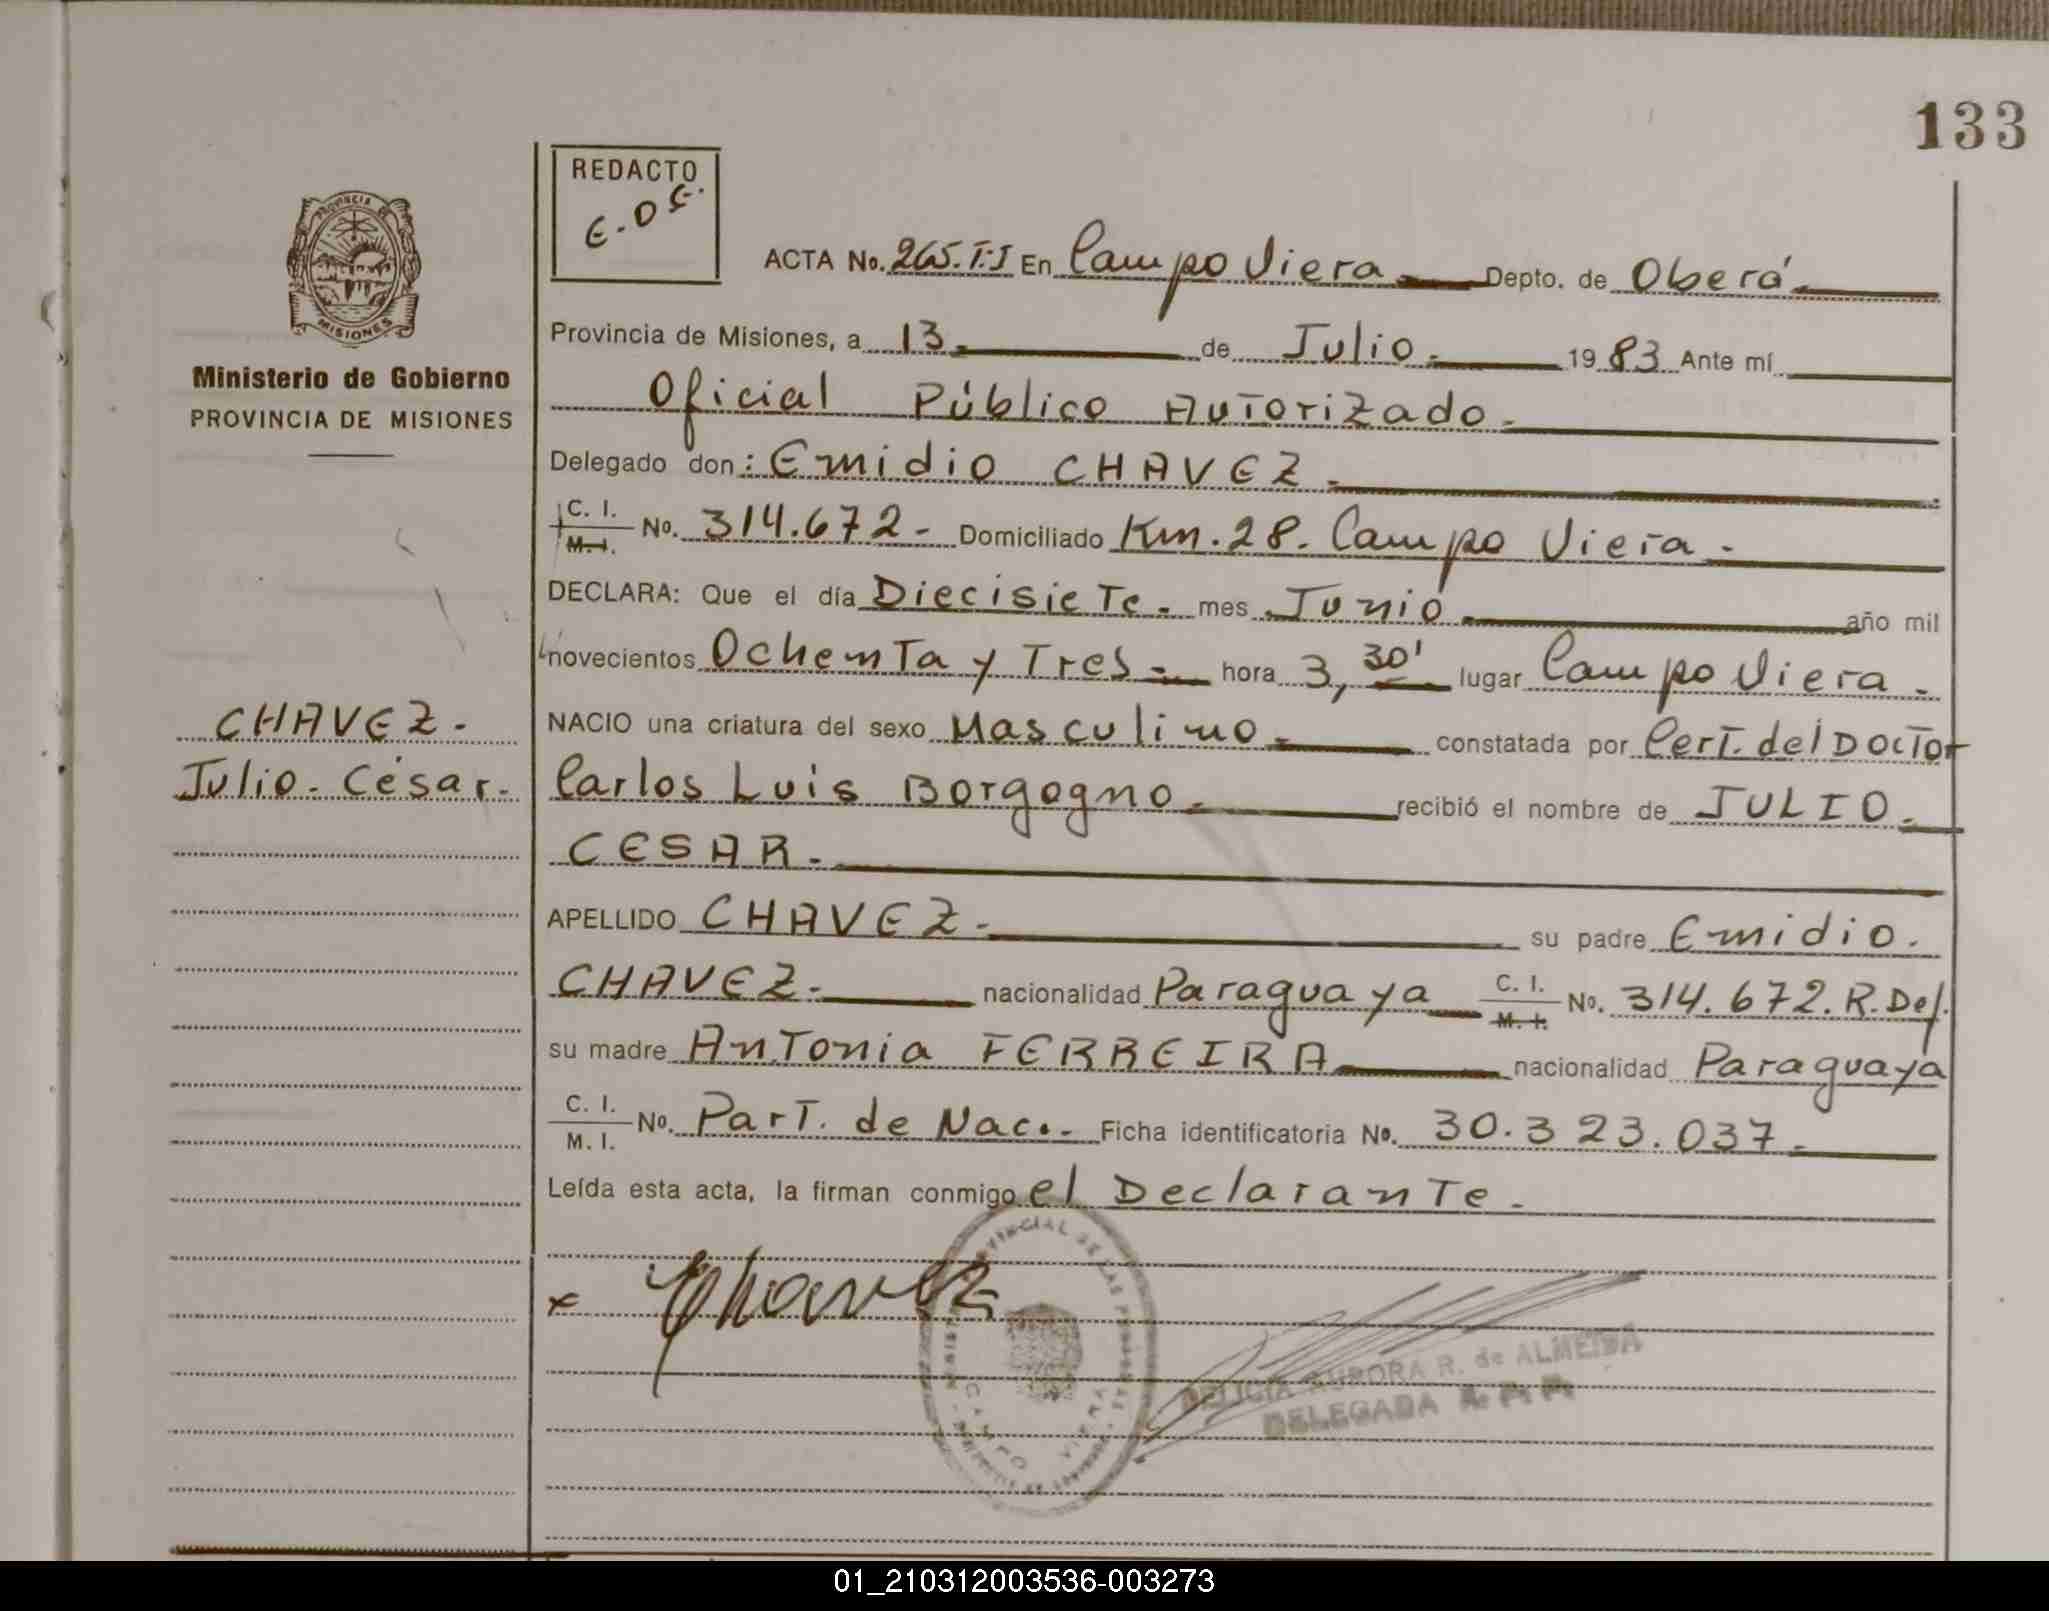 133
REDACTO
E.D.E.
PROVINCIA DE
MISIONES
Ministerio de Gobierno
PROVINCIA DE MISIONES
ACTA No. 265.T:I En Campo Viera.- Depto. de Oberá.
Provincia de Misiones, a 13. de Julio. 1983 Ante mí
Oficial Público Autorizado.
Delegado don: Emidio CHAVEZ.
C. I. M. I. No. 314.672.- Domiciliado Km.28. Campo Viera.-
DECLARA: Que el día Diecisiete. mes Junio año mil
novecientos Ochenta y Tres.- hora 3,30' lugar Campo Viera.
CHAVEZ.
Julio. César.
NACIO una criatura del sexo Masculino. constatada por Cert. del Doctor
Carlos Luis Borgogno. recibió el nombre de JULIO.
CESAR.
APELLIDO CHAVEZ. su padre Emidio.
CHAVEZ. nacionalidad Paraguaya C. I. M. I. No. 314.672.R.Def.
su madre Antonia FERREIRA nacionalidad Paraguaya
C. I. M. I. No. Part. de Nac.. Ficha identificatoria No. 30.323.037.
Leída esta acta, la firman conmigo el Declarante.
x Chavez
PROVINCIAL DE LAS PERSONAS
CAMPO VIERA
DELICIA AURORA R. de ALMEIDA
DELEGADA
01_210312003536-003273